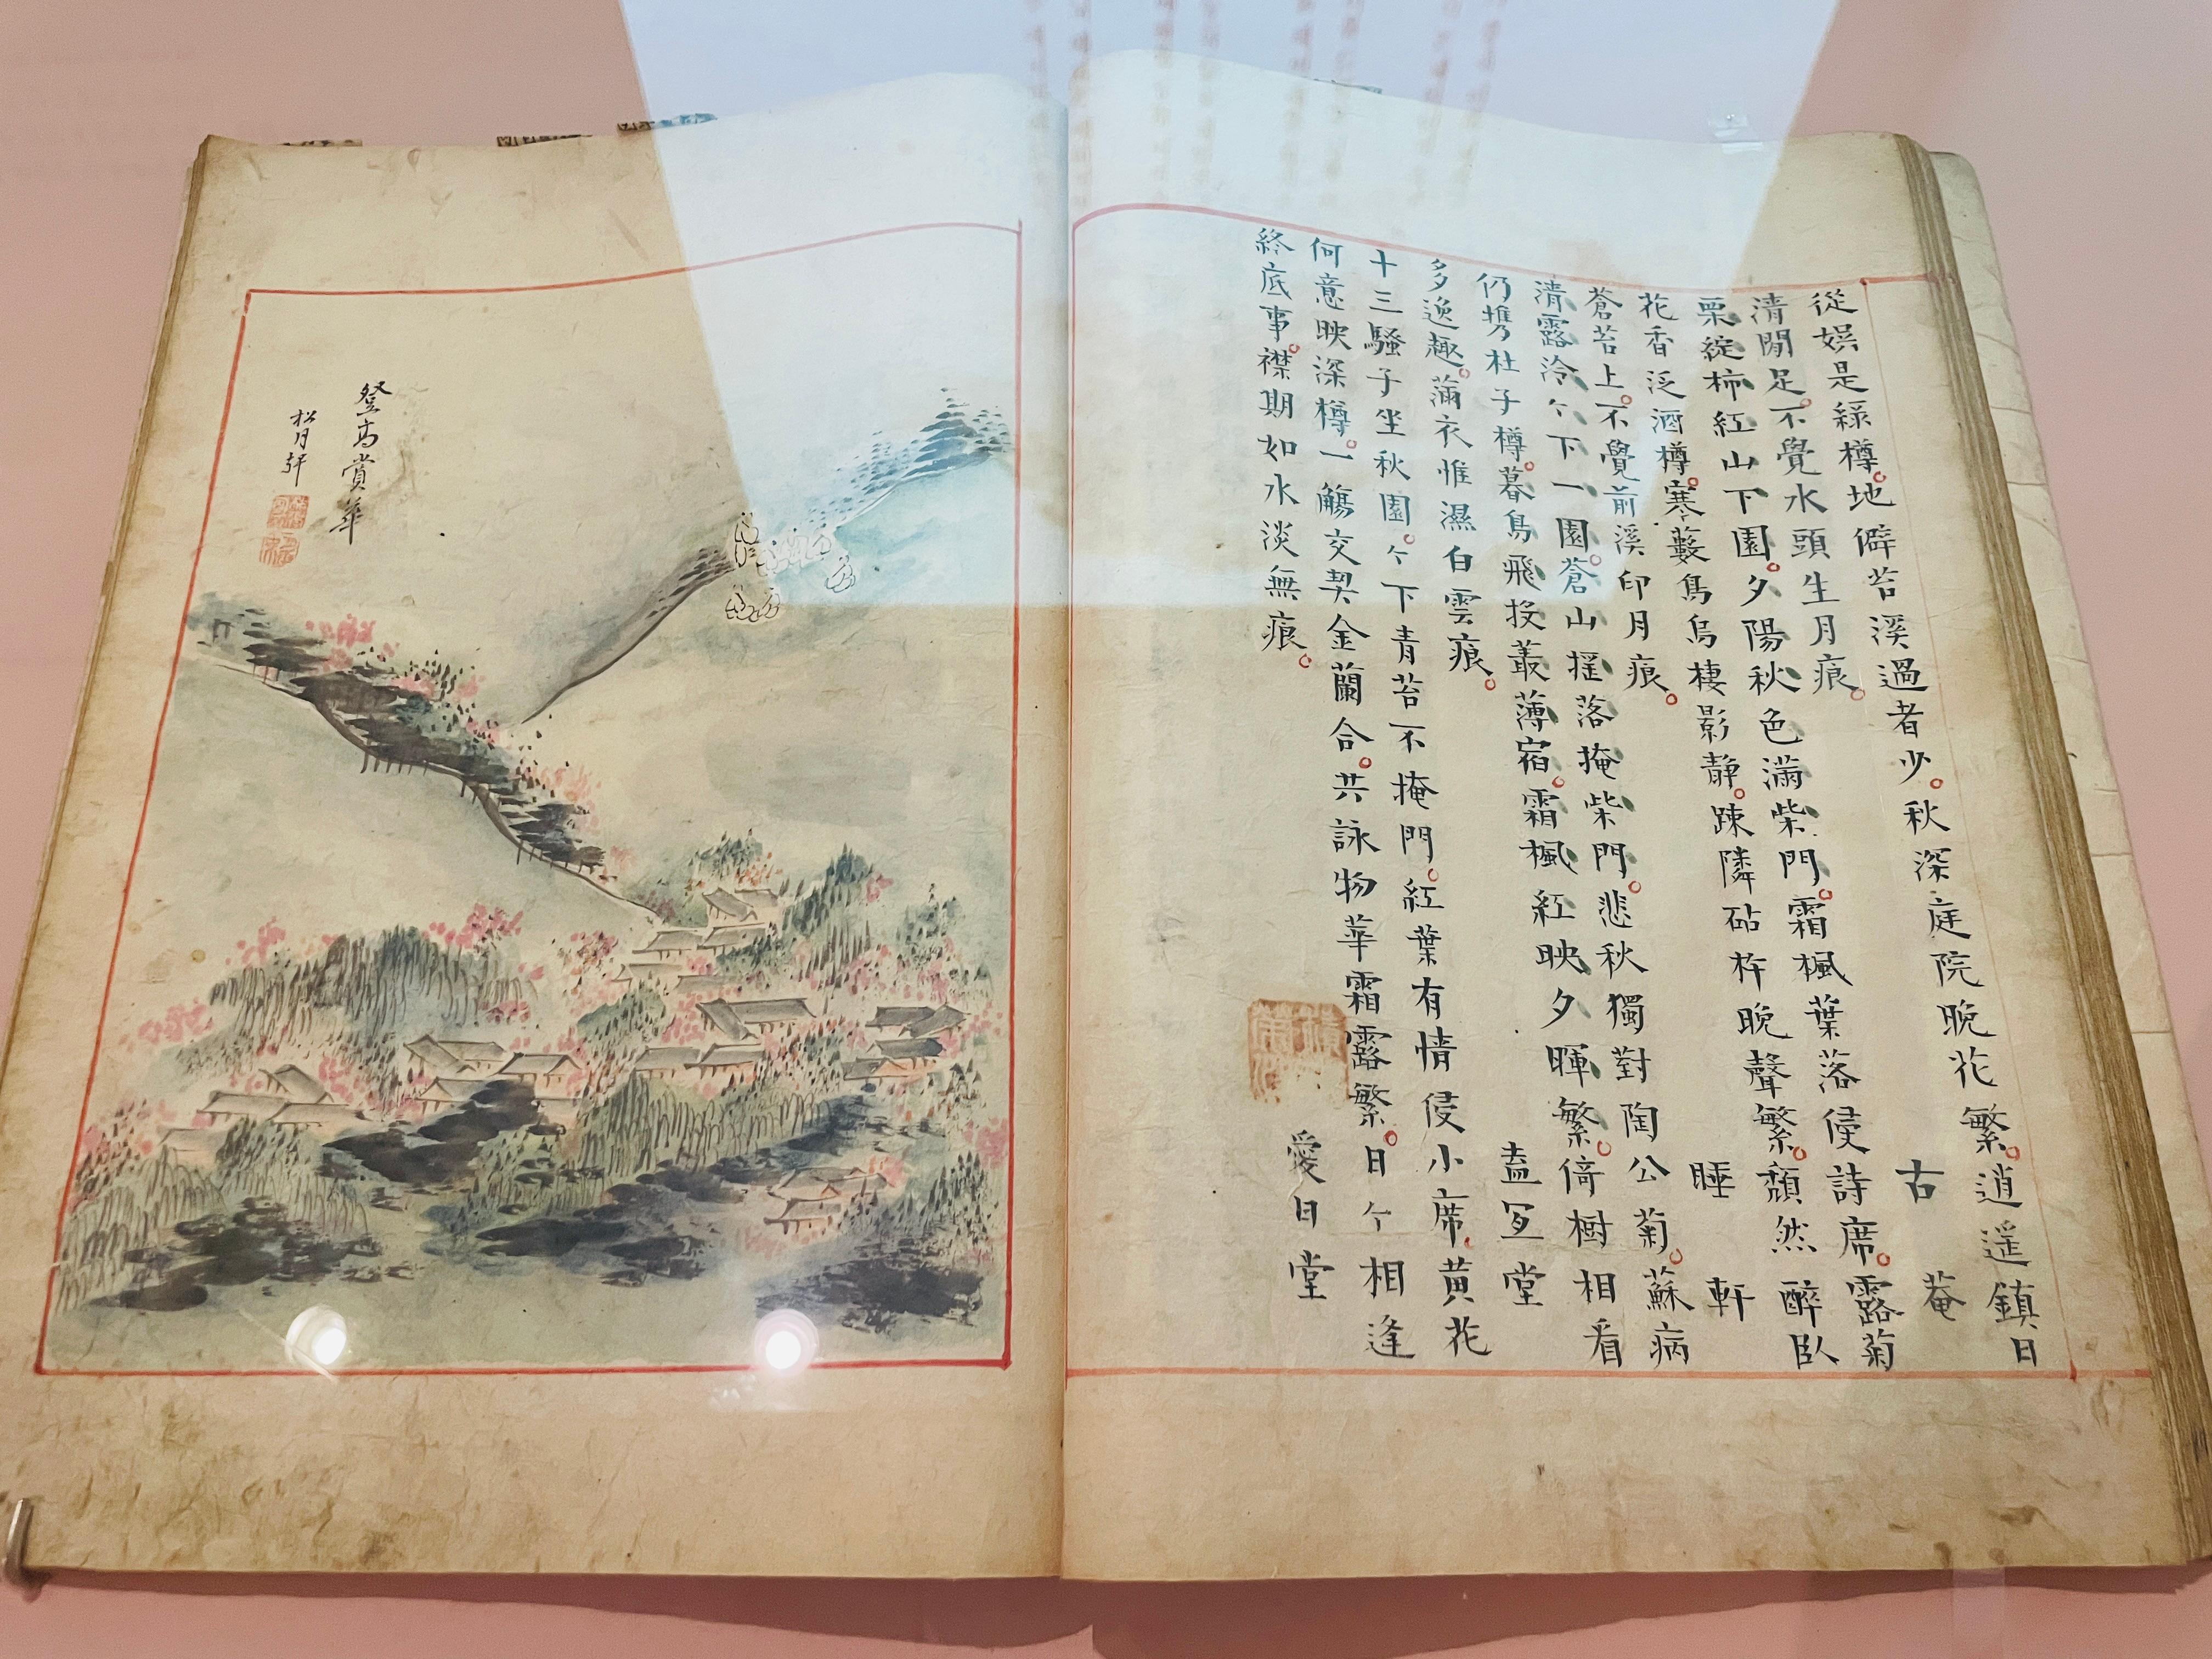 從娛是緑樽。地僻苔溪過者少。秋深庭院晩花繁。逍遥鎮日
清閒足。不覺水頭生月痕。 古菴
栗綻柿紅山下園。夕陽秋色滿柴門。霜楓葉落侵詩席。露菊
花香泛酒樽。寒藪鳥烏棲影靜。踈隣砧杵晩聲繁。頹然醉臥
蒼苔上。不覺前溪印月痕。 睡軒
清露冷々下一園。蒼山摇落掩柴門。悲秋獨對陶公菊。蘇病
仍携杜子樽。暮鳥飛投叢薄宿。霜楓紅映夕暉繁。倚樹相看
多逸趣。滿衣惟濕白雲痕。 盍冝堂
十三騷子坐秋園。々下青苔不掩門。紅葉有情侵小席。黄花
何意映深樽。一觴交契金蘭合。共詠物華霜露繁。日々相逢
終底事。襟期如水淡無痕。 愛日堂
登高賞華
松月軒